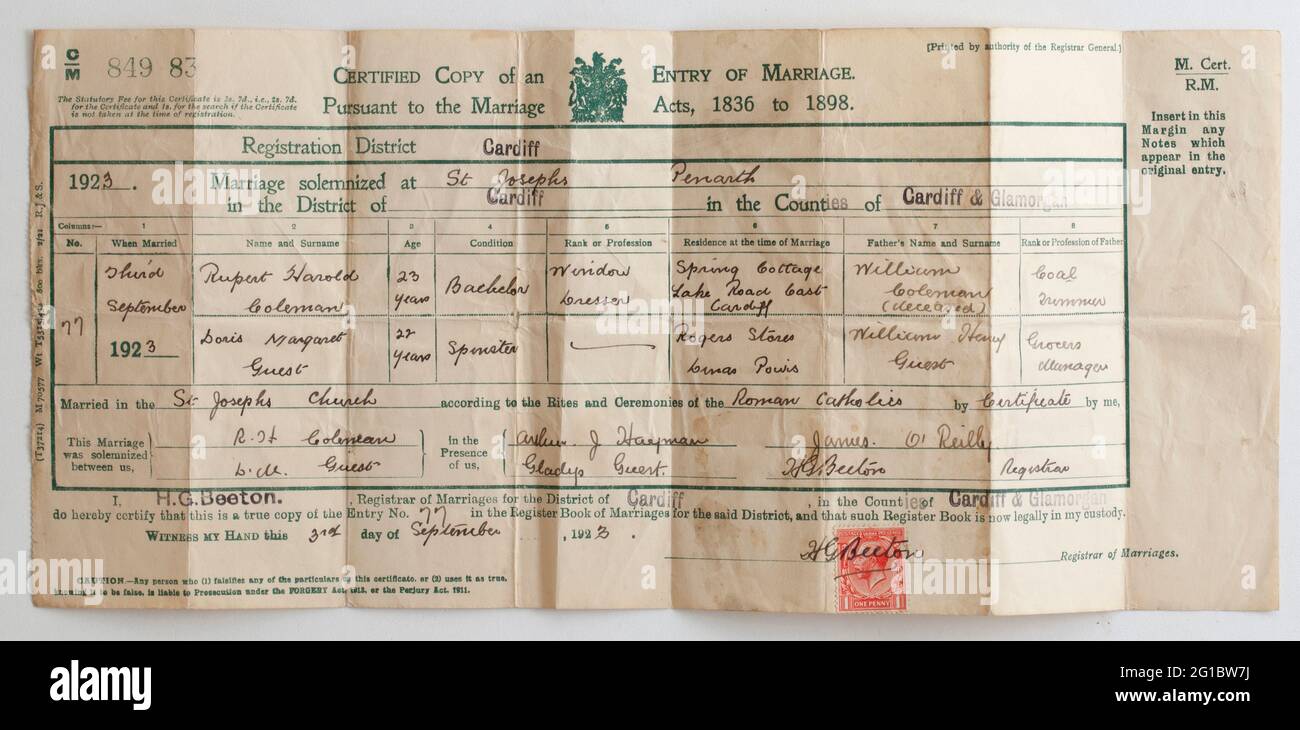 C/M 849 83
CERTIFIED COPY OF AN ENTRY OF MARRIAGE.
PURSUANT TO THE MARRIAGE ACTS, 1836 TO 1898.
[Printed by authority of the Registrar General.]
M. Cert.
R.M.
The Statutory Fee for this Certificate is 2s. 7d., i.e., 2s. 7d.
for the Certificate and 1s. for the search if the Certificate
is not taken at the time of registration.
Insert in this
Margin any
Notes which
appear in the
original entry.
Registration District Cardiff
1923. Marriage solemnized at St Josephs Penarth
in the District of Cardiff in the Counties of Cardiff & Glamorgan
Columns:— 1 2 3 4 5 6 7 8
No. When Married Name and Surname Age Condition Rank or Profession Residence at the time of Marriage Father's Name and Surname Rank or Profession of Father
77 Third September 1923
Rupert Harold Coleman 23 years Bachelor Window Dresser Spring Cottage Lake Road East Cardiff William Coleman (deceased) Coal Trimmer
Doris Margaret Guest 22 years Spinster — Rogers Stores Dinas Powis William Henry Guest Grocers Manager
Married in the St Josephs Church according to the Rites and Ceremonies of the Roman Catholics by Certificate by me,
This Marriage was solemnized between us, R.H Coleman D.M. Guest
In the Presence of us, Arthur J Hayman Gladys Guest.
James O'Reilly
H G Beeton Registrar
I, H.G. Beeton. , Registrar of Marriages for the District of Cardiff , in the Counties of Cardiff & Glamorgan
do hereby certify that this is a true copy of the Entry No. 77 in the Register Book of Marriages for the said District, and that such Register Book is now legally in my custody.
WITNESS MY HAND this 3rd day of September , 1923.
H G Beeton Registrar of Marriages.
ONE PENNY
CAUTION.—Any person who (1) falsifies any of the particulars on this certificate, or (2) uses it as true,
knowing it to be false, is liable to Prosecution under the FORGERY Act, 1913, or the Perjury Act, 1911.
alamy
Image ID: 2G1BW7J
www.alamy.com